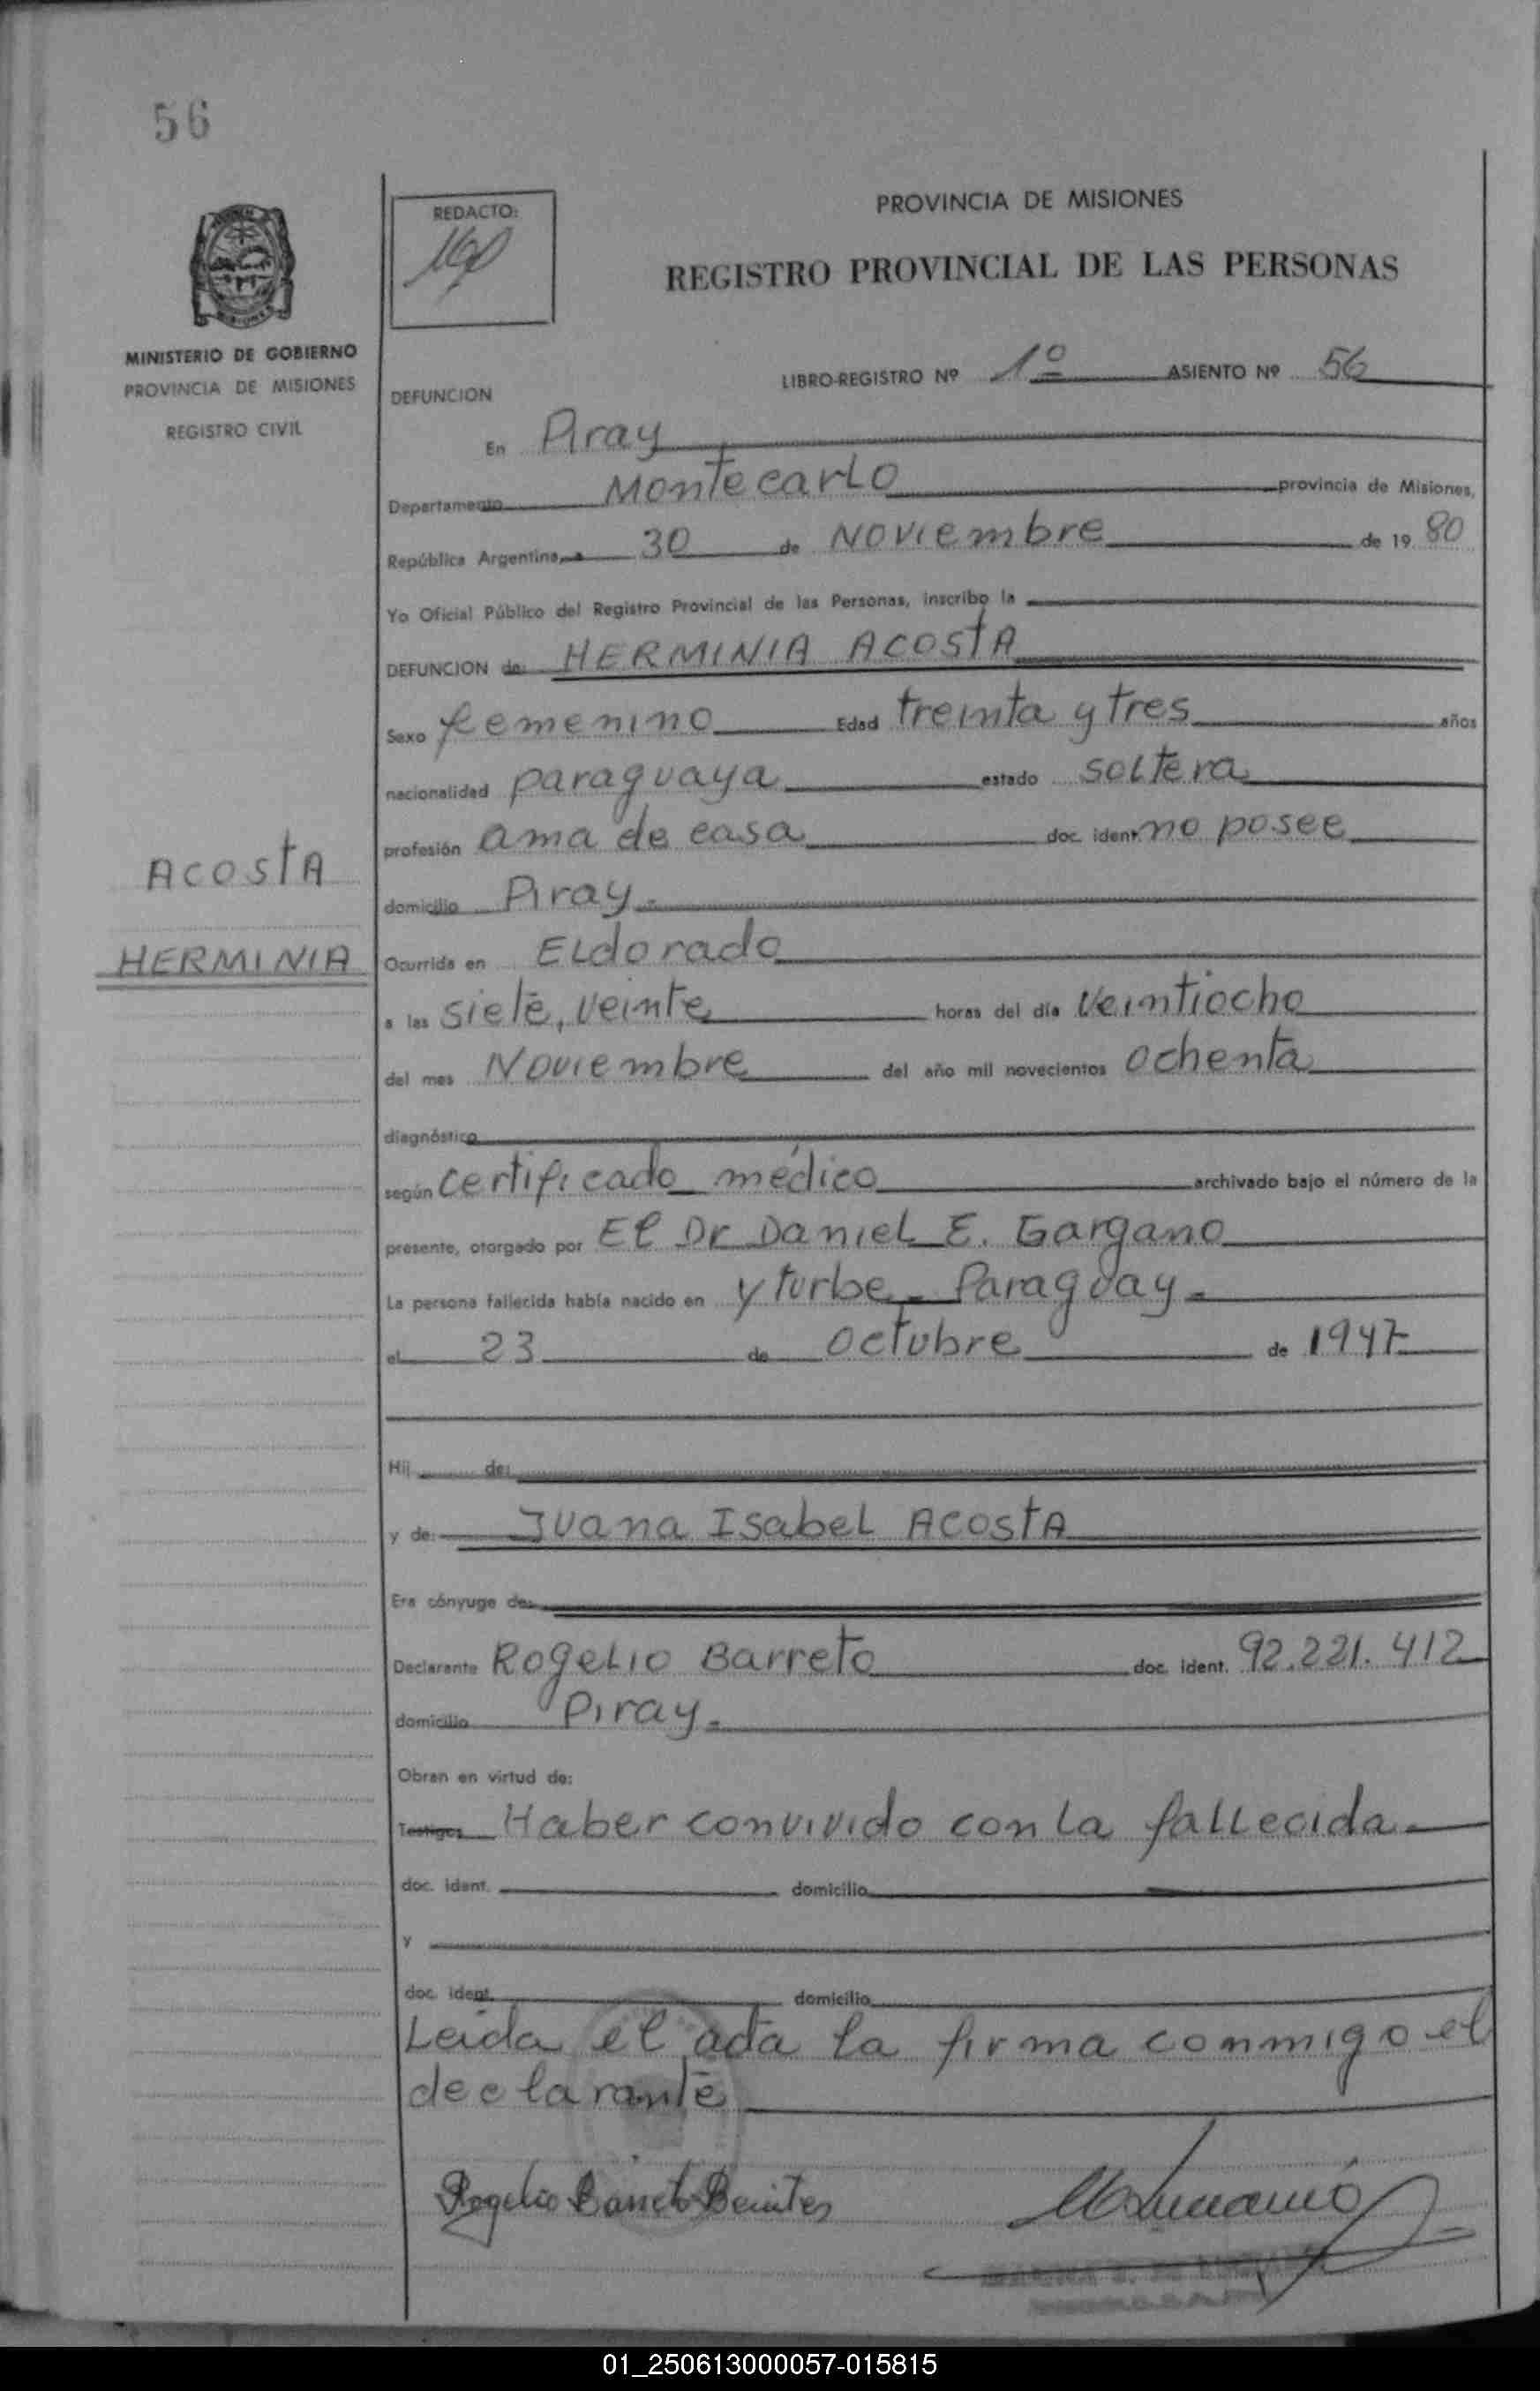 56
REDACTO:
PROVINCIA DE MISIONES
REGISTRO PROVINCIAL DE LAS PERSONAS
MINISTERIO DE GOBIERNO
PROVINCIA DE MISIONES
REGISTRO CIVIL
LIBRO-REGISTRO Nº 1º ASIENTO Nº 56
DEFUNCION
En Piray
Departamento Montecarlo provincia de Misiones,
República Argentina, a 30 de Noviembre de 19 80
Yo Oficial Público del Registro Provincial de las Personas, inscribo la
DEFUNCION de: HERMINIA ACOSTA
Sexo femenino Edad treinta y tres años
nacionalidad paraguaya estado soltera
profesión ama de casa doc. ident. no posee
ACOSTA
HERMINIA
domicilio Piray.
Ocurrida en Eldorado
a las siete, veinte horas del día veintiocho
del mes Noviembre del año mil novecientos ochenta
diagnóstico
según certificado médico archivado bajo el número de la
presente, otorgado por El Dr Daniel E. Gargano
La persona fallecida había nacido en Yturbe - Paraguay -
el 23 de Octubre de 1947
Hij de:
y de: Juana Isabel Acosta
Era cónyuge de:
Declarante Rogelio Barreto doc. ident. 92.221.412
domicilio Piray.
Obran en virtud de:
Testigos Haber convivido con la fallecida.
doc. ident. domicilio
y
doc. ident. domicilio
Leida el acta la firma conmigo el
declarante
Rogelio Barreto Benites
01_250613000057-015815